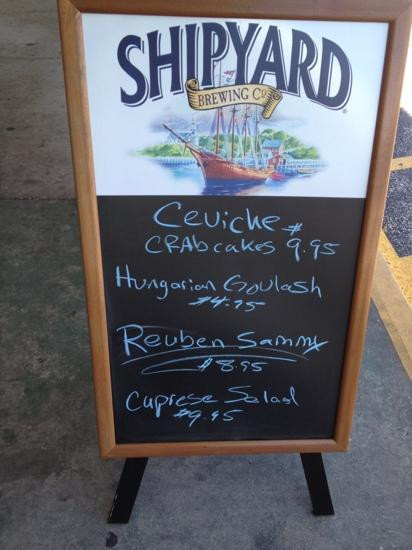 SHIPYARD
BREWING CO
Ceviche
CRAB cakes $9.95
Hungarian Goulash
$4.95
Reuben Sammy
$8.95
Caprese Salad
$9.95